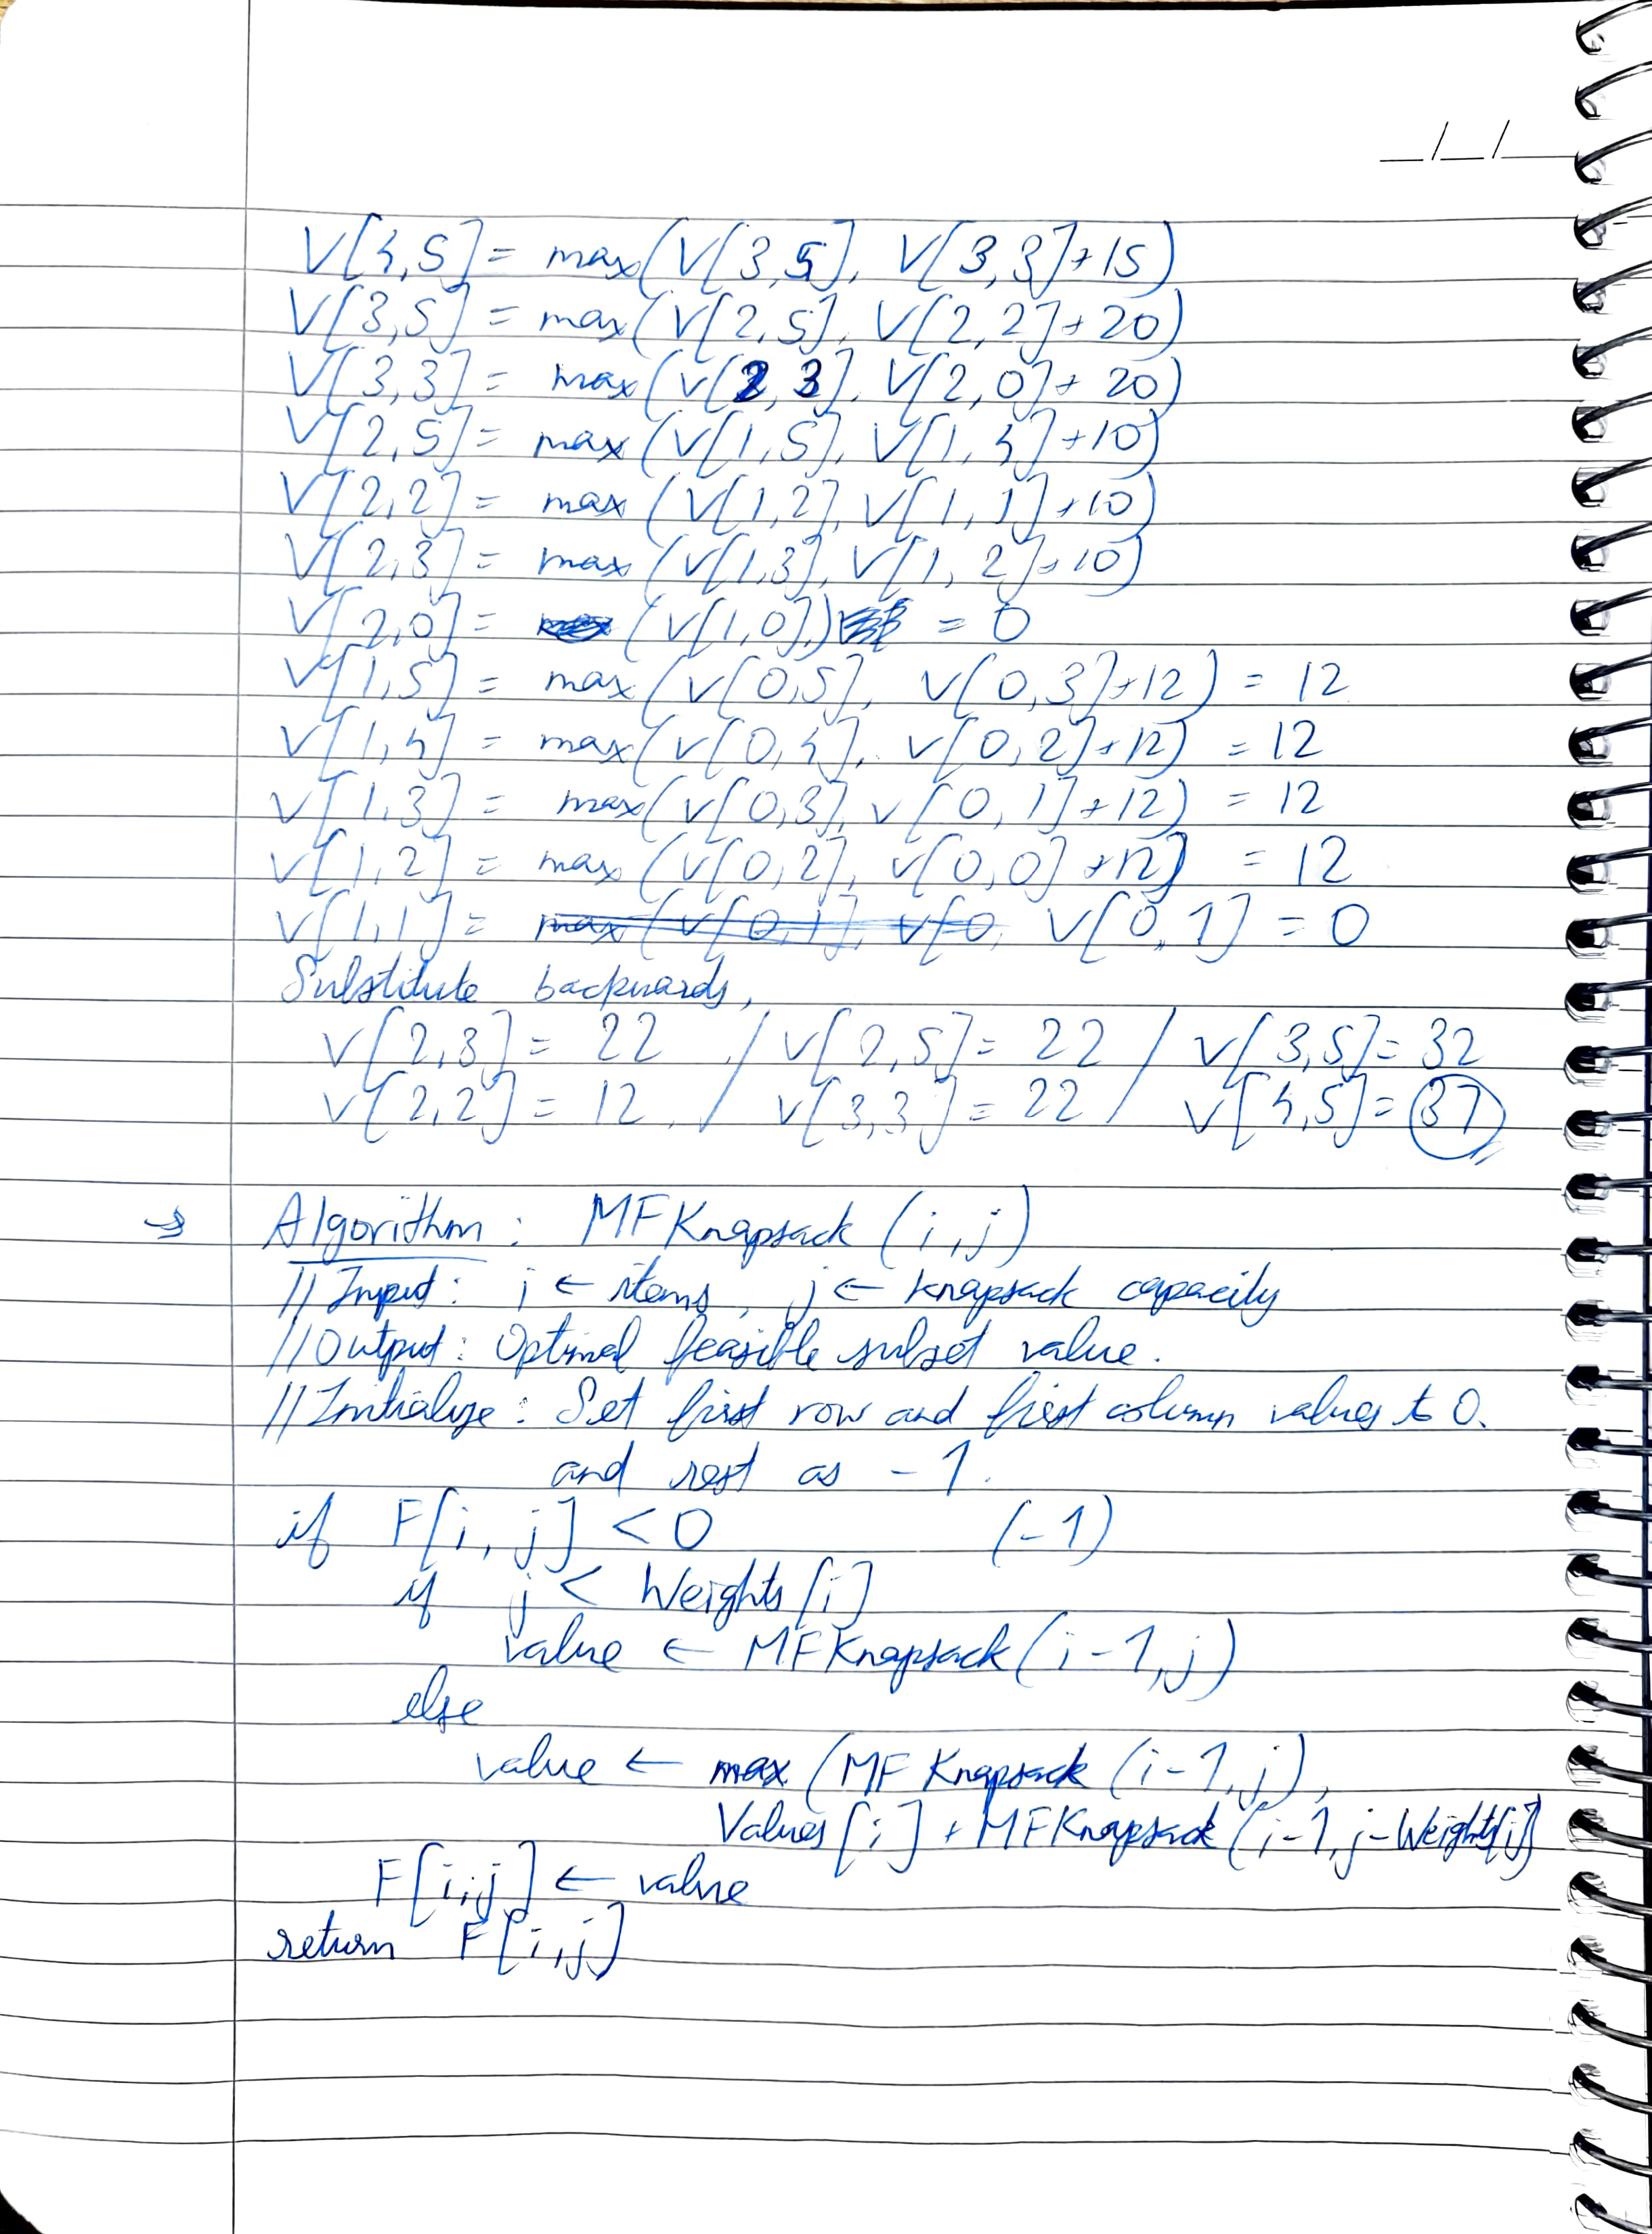 _/_/_
V[4,5] = max(V[3,5], V[3,3]+15)
V[3,5] = max(V[2,5], V[2,2]+20)
V[3,3] = max(V[2,3], V[2,0]+20)
V[2,5] = max(V[1,5], V[1,4]+10)
V[2,2] = max(V[1,2], V[1,1]+10)
V[2,3] = max(V[1,3], V[1,2]+10)
V[2,0] = (V[1,0]) = 0
V[1,5] = max(V[0,5], V[0,3]+12) = 12
V[1,4] = max(V[0,4], V[0,2]+12) = 12
V[1,3] = max(V[0,3], V[0,1]+12) = 12
V[1,2] = max(V[0,2], V[0,0]+12) = 12
V[1,1] = max(V[0,1], V[0, V[0,1] = 0
Substitute backwards,
V[2,3] = 22 / V[2,5] = 22 / V[3,5] = 32
V[2,2] = 12 / V[3,3] = 22 / V[4,5] = 37
→ Algorithm: MFKnapsack(i,j)
//Input: i ← items, j ← knapsack capacity
//Output: Optimal feasible subset value.
//Initialize: Set first row and first column values to 0.
and rest as -1.
if F[i,j] < 0 (-1)
if j < Weights[i]
value ← MFKnapsack(i-1,j)
else
value ← max(MFKnapsack(i-1,j),
Values[i] + MFKnapsack(i-1,j-Weights[i])
F[i,j] ← value
return F[i,j]